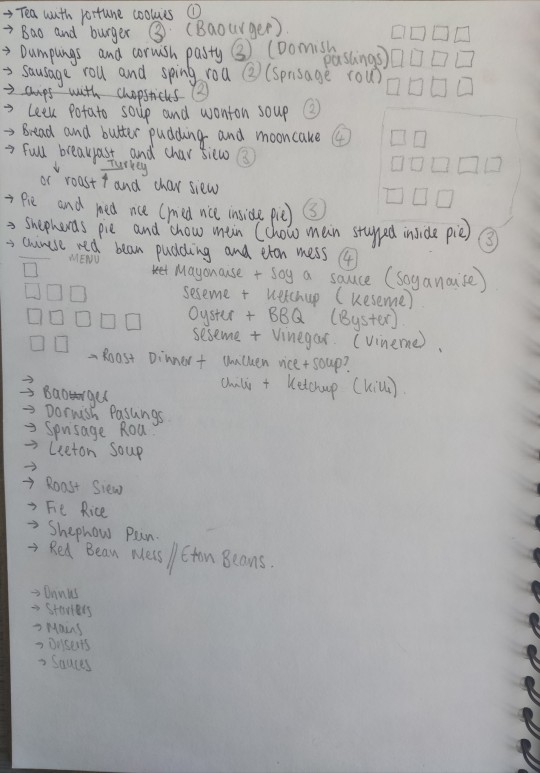 → Tea with fortune cookies ①
→ Bao and burger ③ (Baourger)
→ Dumplings and cornish pasty ③ (Dornish paslings)
→ Sausage roll and spring roll ② (Sprisage roll)
→ chips with chopsticks ②
→ Leek Potato soup and wonton soup ②
→ Bread and butter pudding and mooncake ④
→ Full breakfast and char siew ③
↓ Turkey
or roast ↑ and char siew
→ Pie and fried rice (fried rice inside pie) ③
→ Shepherds pie and chow mein (chow mein stuffed inside pie) ③
→ Chinese red bean pudding and eton mess ④
MENU
Mayonaise + Soy sauce (Soyanaise)
Seseme + Ketchup (Keseme)
Oyster + BBQ (Byster)
Seseme + Vinegar (Vineme).
→ Roast Dinner + chicken rice + soup?
chilli + Ketchup (Killi)
→
→ Baourger
→ Dornish Paslings
→ Sprisage Roll
→ Leeton Soup
→
→ Roast Siew
→ Fie Rice
→ Shephow Pein.
→ Red Bean Mess // Eton Beans.
→ Drinks
→ Starters
→ Mains
→ Desserts
→ Sauces